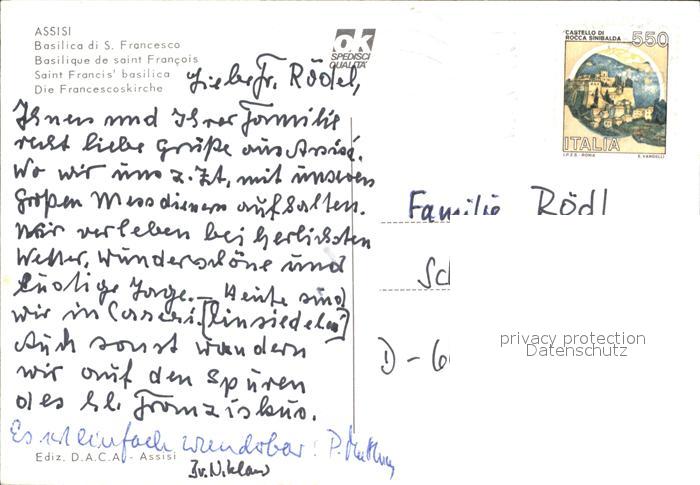 ASSISI
Basilica di S. Francesco
Basilique de saint François
Saint Francis' basilica
Die Francescoskirche
ok
SPEDISCI
QUALITÀ
CASTELLO DI
ROCCA SINIBALDA
550
ITALIA
I.P.Z.S. - ROMA E. VANGELLI
Liebe Fr. Rödel,
Ihnen und Ihrer Familie
recht liebe Grüße aus Assisi.
Wo wir uns z. Zt. mit unseren
großen Messdienern aufhalten.
Wir verleben bei herlichsten
Wetter, wunderschöne und
lustige Tage. – Heute sind
wir in Carceri. [Einsiedelei]
Auch sonst wandern
wir auf den Spuren
des hl. Franziskus.
Es ist einfach wunderbar! P.
Br. Niklaus
Ediz. D.A.C.A. - Assisi
Familie Rödl
Sc
D - 6
privacy protection
Datenschutz